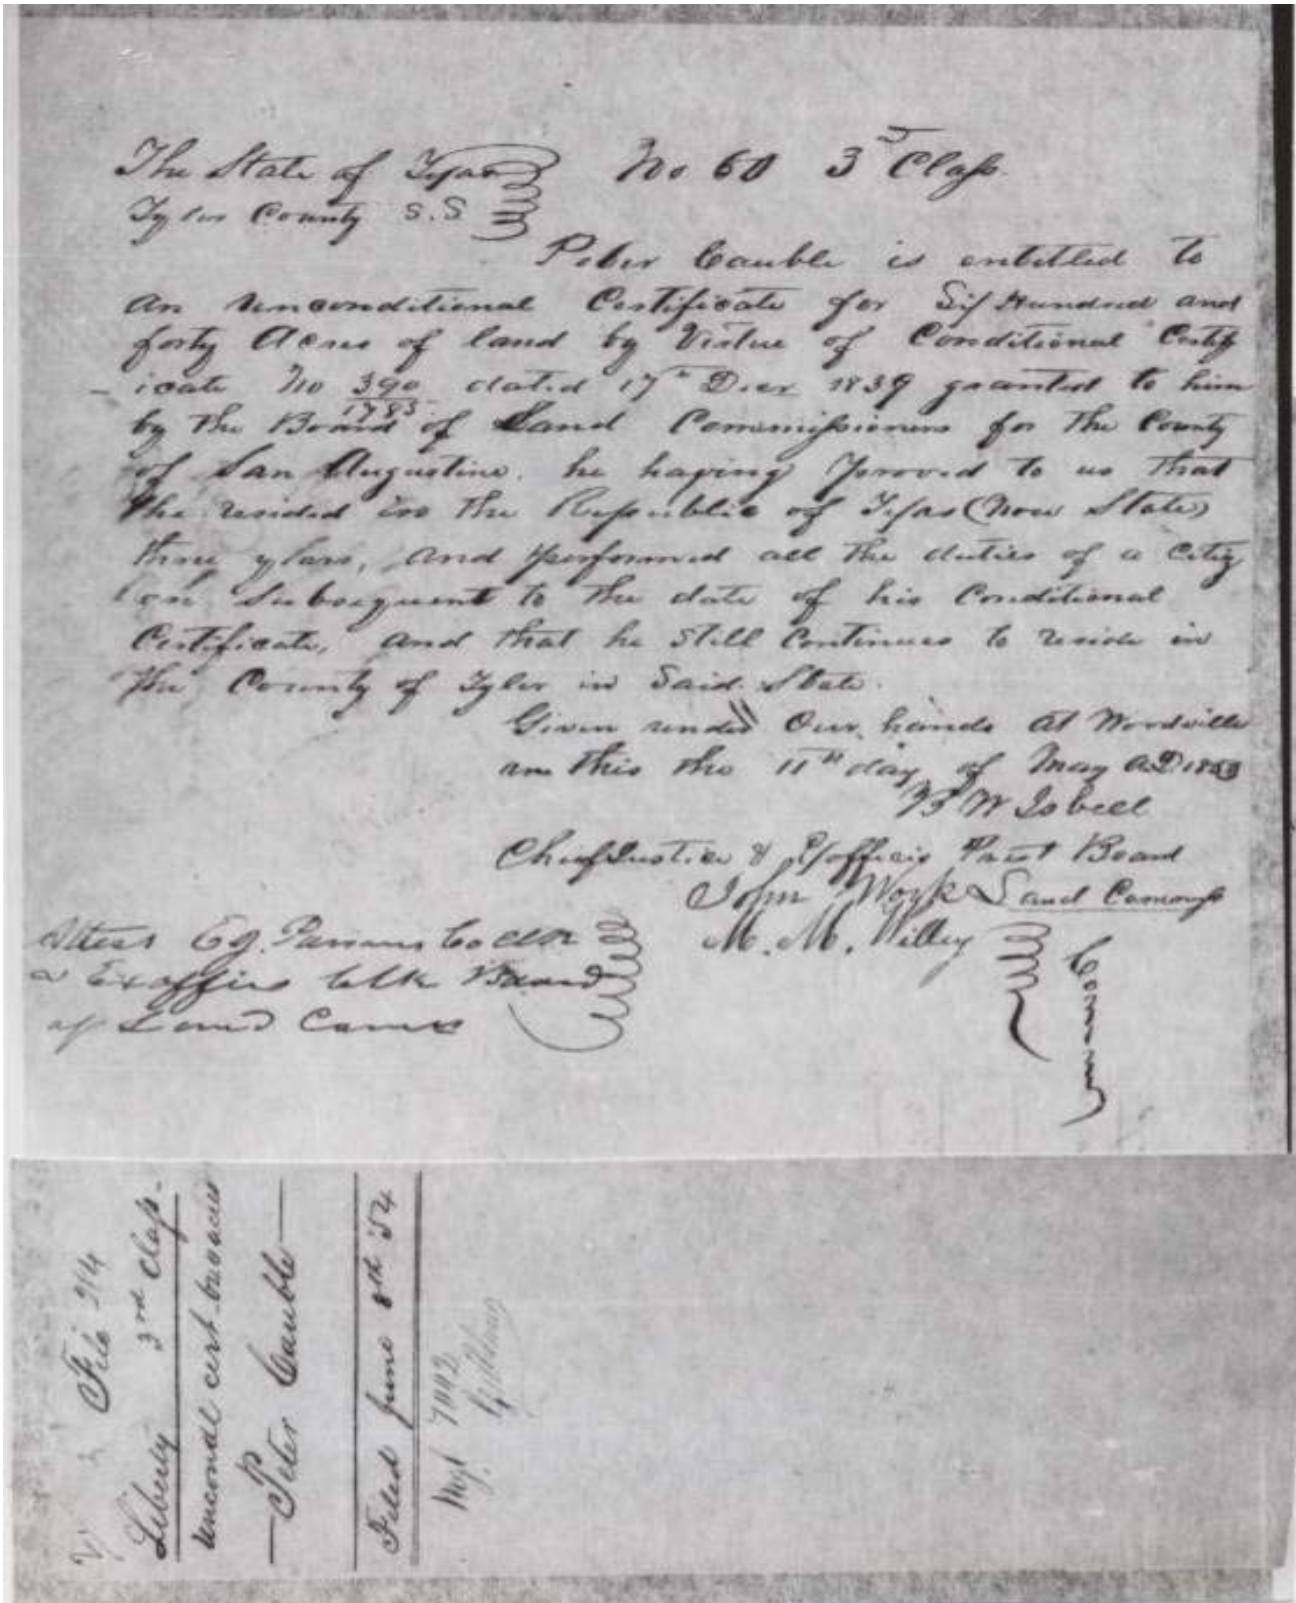 The State of Texas No 60 3d Class
Tyler County S.S
Peter Cauble is entitled to
an unconditional Certificate for Six Hundred and
forty Acres of land by Virtue of Conditional Certif
icate No 390/1783 dated 17th Decr 1839 granted to him
by the Board of Land Commissioners for the County
of San Augustine. he having proved to us that
he resided in the Republic of Texas (Now State)
three years, and performed all the duties of a Citiz
en Subsequent to the date of his Conditional
Certificate, and that he still Continues to reside in
the County of Tyler in Said State.
Given under Our hands at Woodville
on this the 11th day of May A.D 1853
W Isbell
Chief Justice & Exofficio Prest Board
John Work Land Commrs
M. M. Willey
Attest Parsons Co Clk
Exofficio Clk Board
of Land Comrs
File 214
Liberty 3rd Class.
Uncondl cert 640 acres
Peter Cauble
Filed June 8th 54